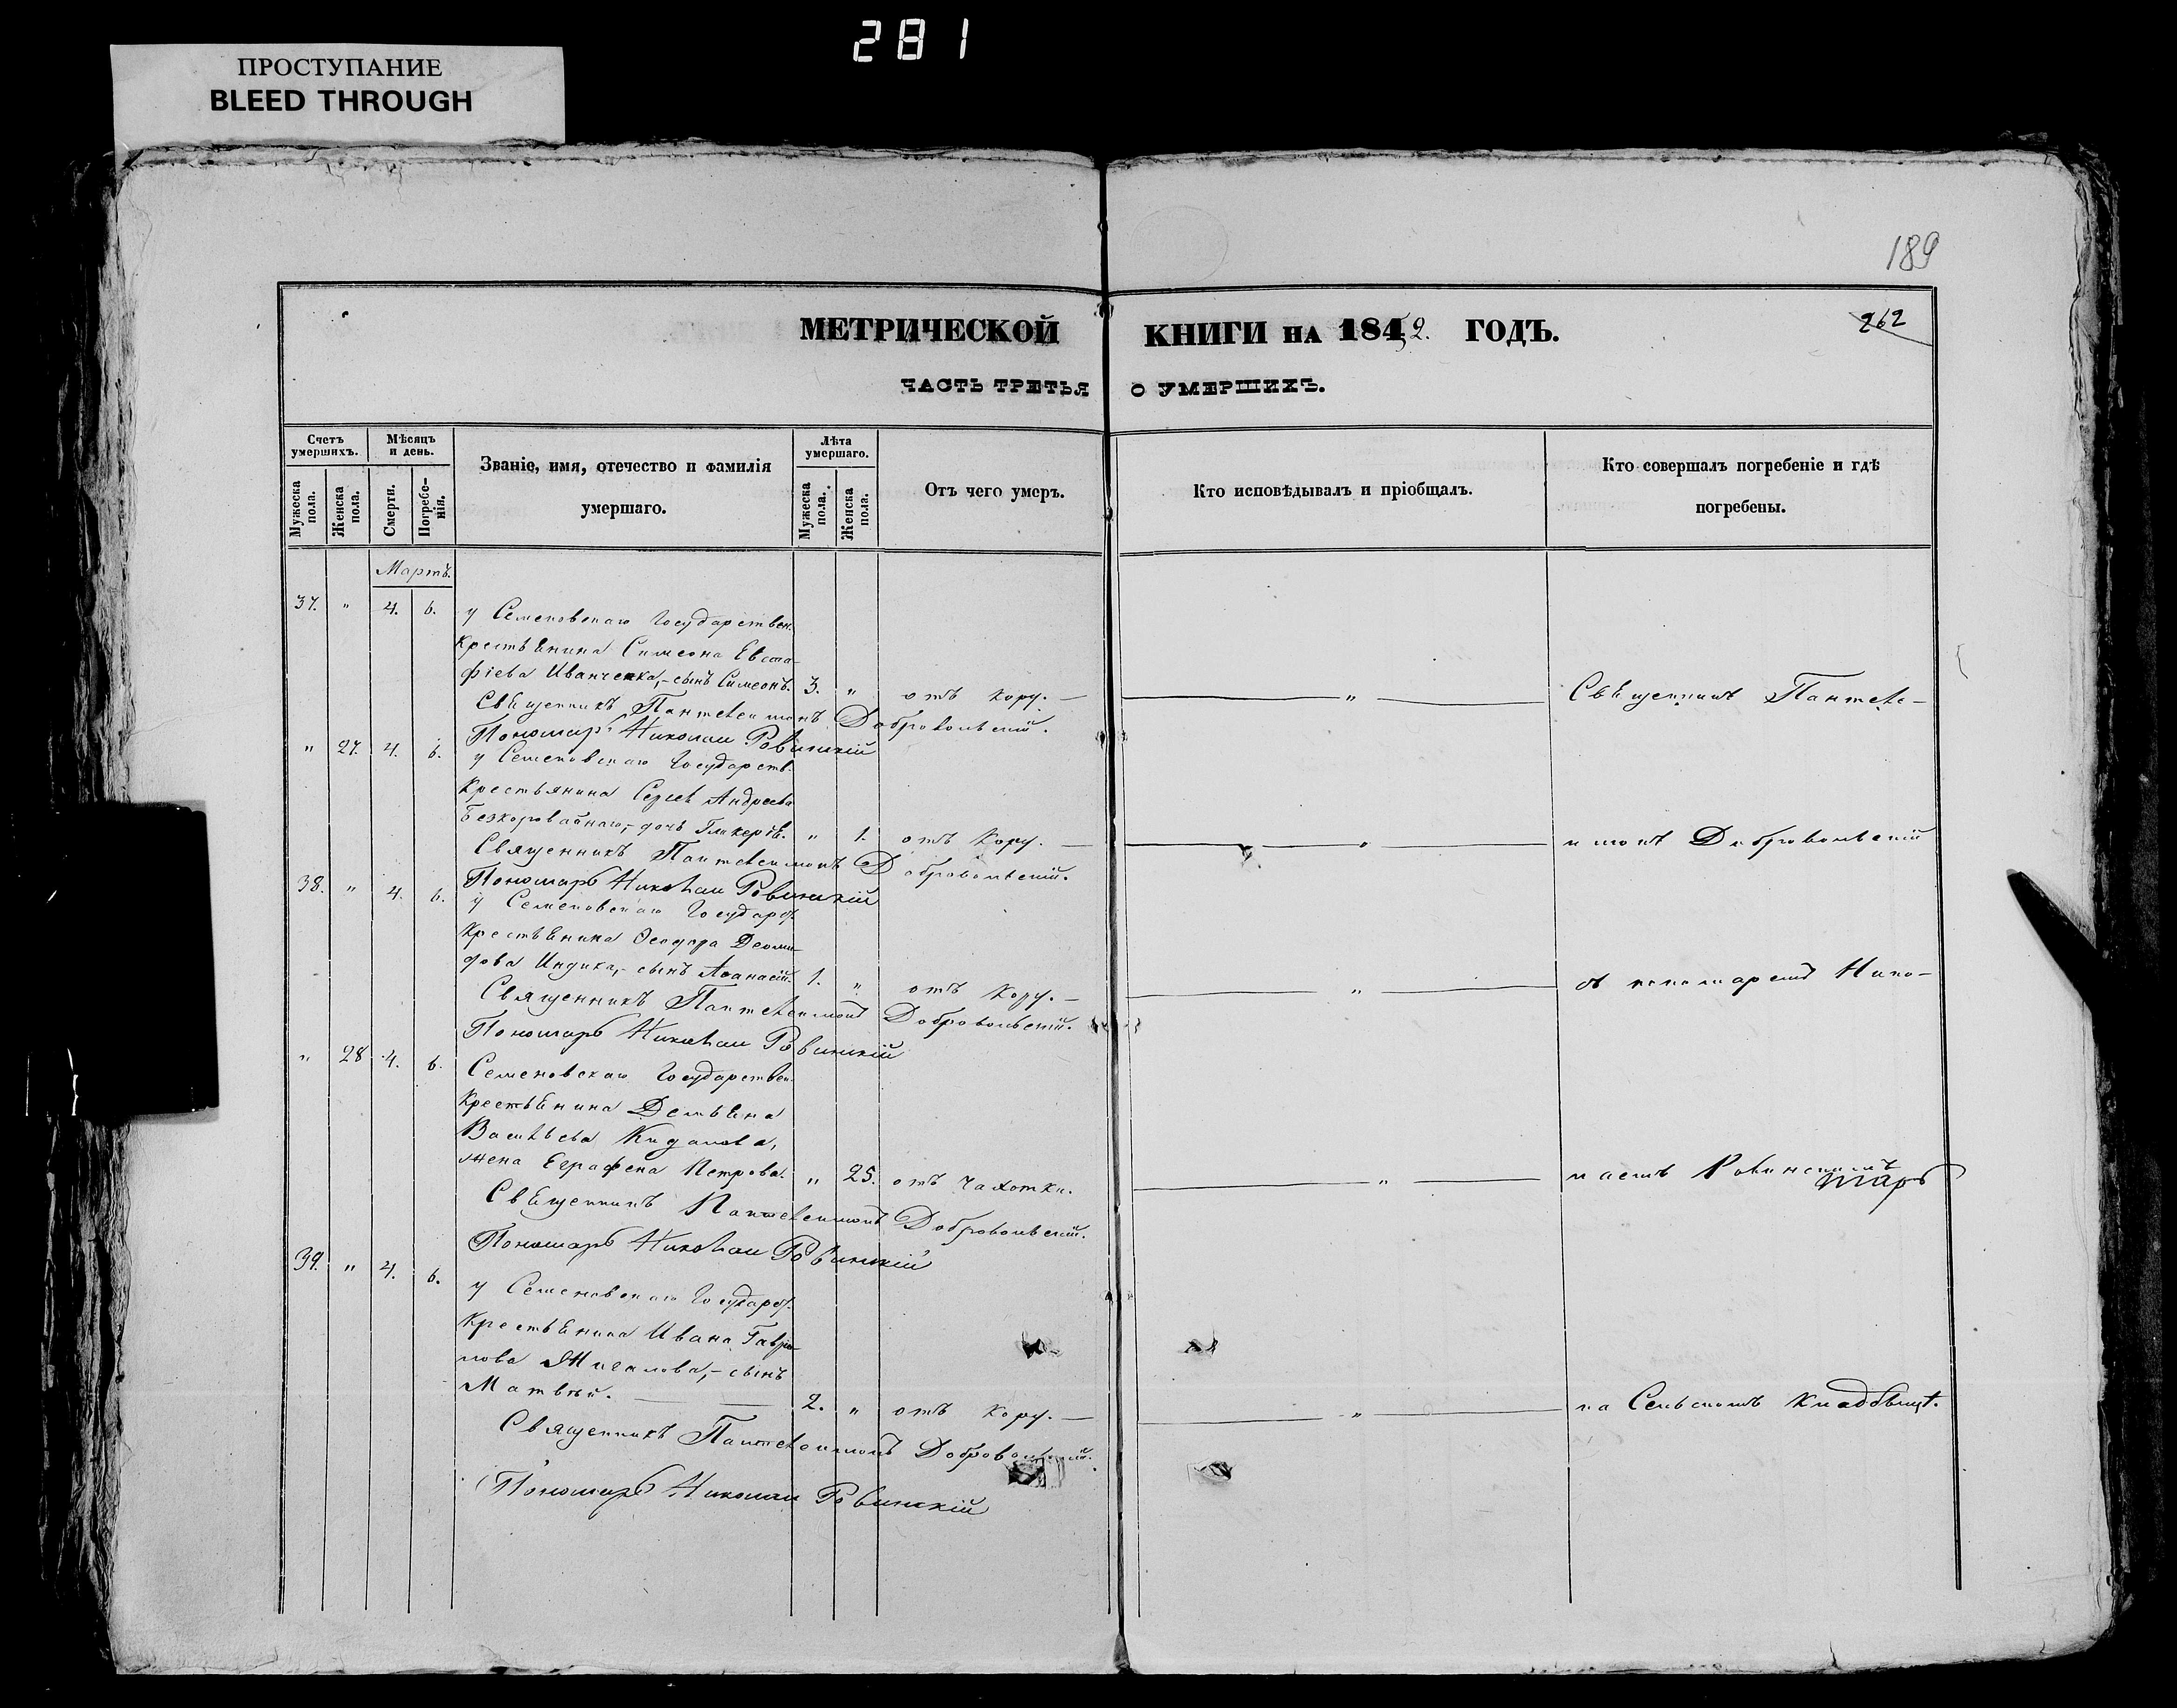 281
ПРОСТУПАНИЕ
BLEED THROUGH
189
МЕТРИЧЕСКОЙ КНИГИ НА 1852. ГОДЪ.
262
ЧАСТЬ ТРЕТЬЯ О УМЕРШИХЪ.
Счетъ умершихъ.
Мужеска пола.
Женска пола.
Мѣсяцъ и день.
Смерти.
Погребенія.
Званіе, имя, отечество и фамилія
умершаго.
Лѣта умершаго.
Мужеска пола.
Женска пола.
Отъ чего умеръ.
Кто исповѣдывалъ и пріобщалъ.
Кто совершалъ погребеніе и гдѣ
погребены.
Мартъ.
37. " 4. 6. у Семеновскаго Государствен.
крестьянина Симеона Евста-
фіева Иванченка,- сынъ Симеонъ. 3. " отъ кору. — " — Священникъ Пантеле-
Священникъ Пантелеимонъ Добровольскій.
Пономарь Николай Ровинскій
" 27. 4. 6. у Семеновскаго Государств.
крестьянина Сергея Андреева
Безкоровайнаго,- дочь Гликерія. " 1. отъ кору. — " — имонъ Добровольскій
Священникъ Пантелеимонъ Добровольскій.
Пономарь Николай Ровинскій
38. " 4. 6. у Семеновскаго Государ.
крестьянина Ѳеодора Деоми-
дова Индика,- сынъ Аѳанасій. 1. " отъ кору. — " — съ пономаремъ Нико-
Священникъ Пантелеимонъ Добровольскій.
Пономарь Николай Ровинскій
" 28 4. 6. Семеновскаго Государствен.
крестьянина Демьяна
Васильева Кидалова,
жена Еграфена Петрова. " 25. отъ чахотки. — " — лаемъ Ровинскимъ
Священникъ Пантелеимонъ Добровольскій.
Пономарь Николай Ровинскій
39. " 4. 6. у Семеновскаго Государ.
крестьянина Ивана Гаври-
лова Жигалова,- сынъ
Матвѣй. — 2. " отъ кору. — " — на Сельскомъ кладбищѣ.
Священникъ Пантелеимонъ Добровольскій.
Пономарь Николай Ровинскій